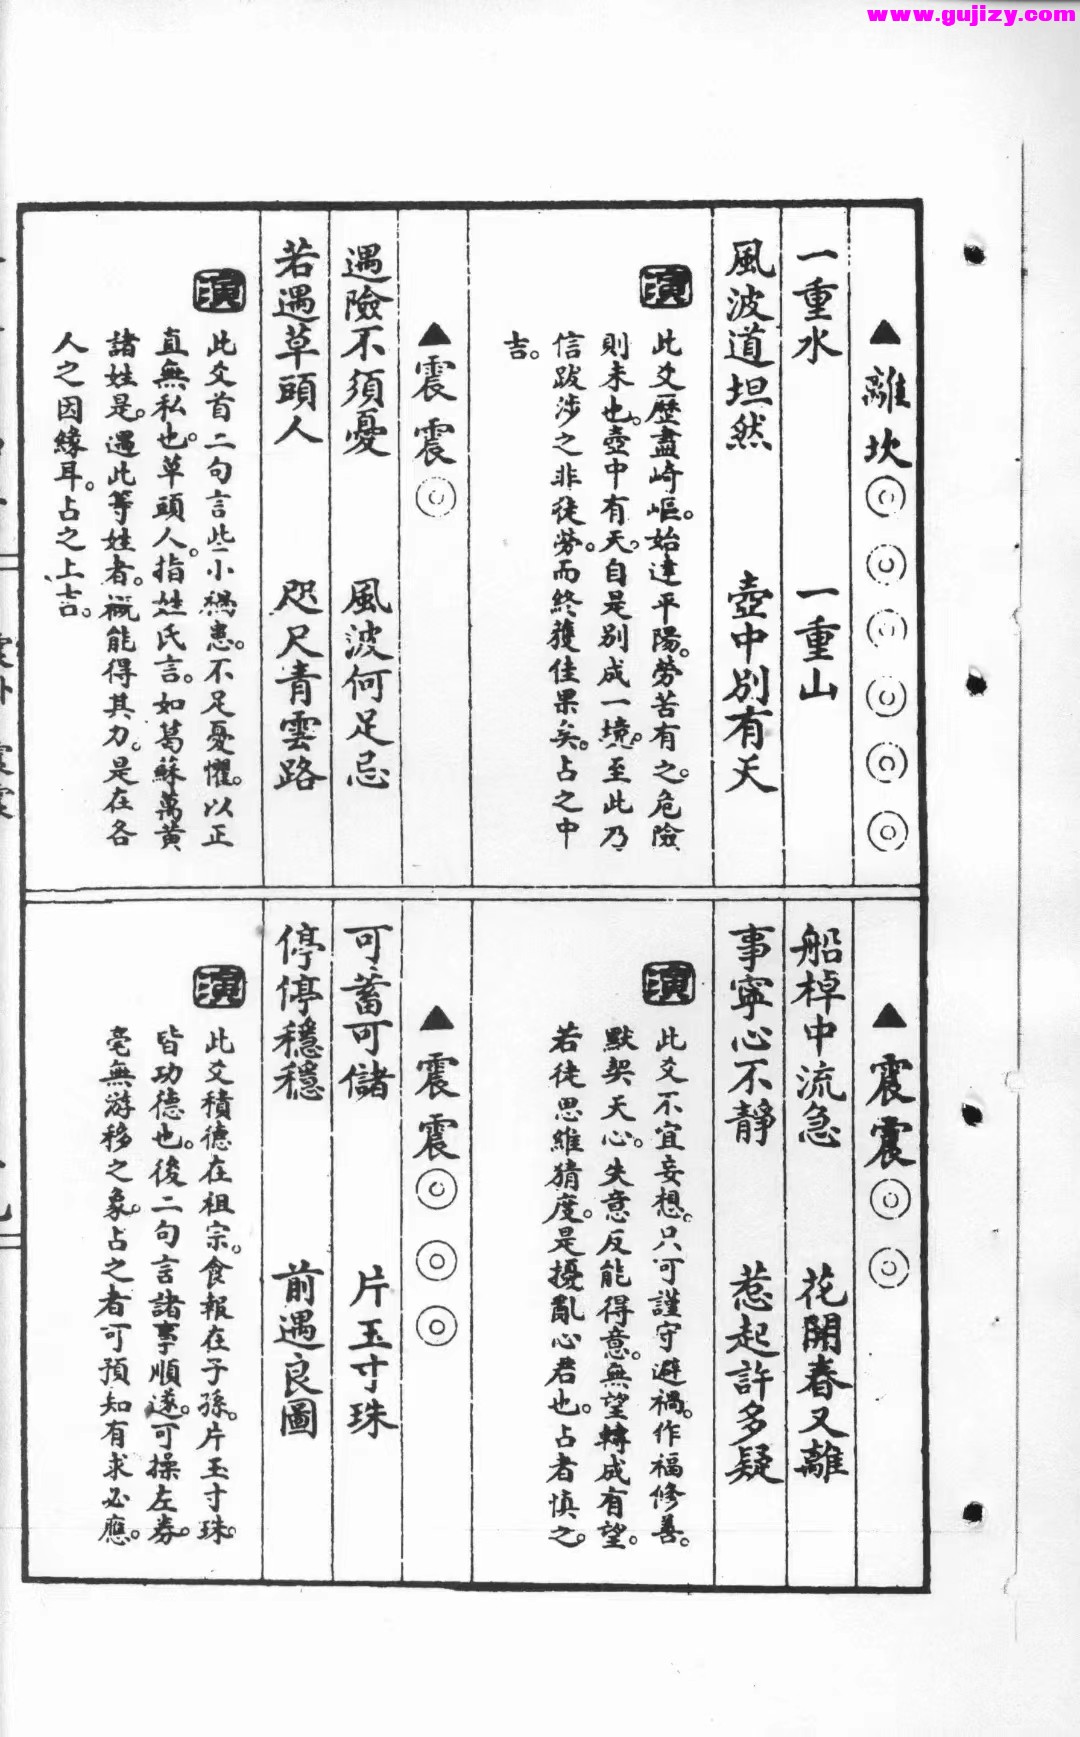 www.gujizy.com
▲離坎◎◎◎◎◎◎
一重水　一重山
風波道坦然　壺中別有天
演
此爻歷盡崎嶇。始達平陽。勞苦有之。危險
則未也。壺中有天。自是別成一境。至此乃
信跋涉之非徒勞。而終獲佳果矣。占之中
吉。
▲震震◎
遇險不須憂　風波何足忌
若遇草頭人　咫尺青雲路
演
此爻首二句言些小禍患。不足憂懼。以正
直無私也。草頭人。指姓氏言。如葛蘇萬黃
諸姓是。遇此等姓者。概能得其力。是在各
人之因緣耳。占之上吉。
▲震震◎◎
船棹中流急　花開春又離
事寧心不靜　惹起許多疑
演
此爻不宜妄想。只可謹守避禍。作福修善。
默契天心。失意反能得意。無望轉成有望。
若徒思維猜度。是擾亂心君也。占者慎之。
▲震震◎◎◎
可蓄可儲　片玉寸珠
停停穩穩　前遇良圖
演
此爻積德在祖宗。食報在子孫。片玉寸珠。
皆功德也。後二句言諸事順遂。可操左券。
毫無游移之象。占之者可預知有求必應。